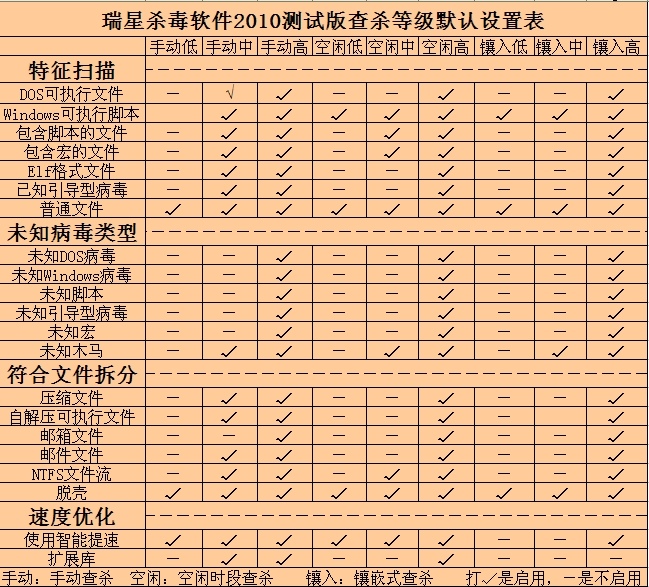 瑞星杀毒软件2010测试版查杀等级默认设置表
手动低 手动中 手动高 空闲低 空闲中 空闲高 镶入低 镶入中 镶入高
特征扫描
DOS可执行文件 — √ ✓ — — ✓ — — ✓
Windows可执行脚本 — ✓ ✓ ✓ ✓ ✓ ✓ ✓ ✓
包含脚本的文件 — ✓ ✓ — ✓ ✓ — — ✓
包含宏的文件 — ✓ ✓ — ✓ ✓ — — ✓
Elf格式文件 — ✓ ✓ — — ✓ — — ✓
已知引导型病毒 — ✓ ✓ — — ✓ — — ✓
普通文件 ✓ ✓ ✓ ✓ ✓ ✓ ✓ ✓ ✓
未知病毒类型
未知DOS病毒 — — ✓ — — ✓ — — ✓
未知Windows病毒 — — ✓ — — ✓ — — ✓
未知脚本 — — ✓ — — ✓ — — ✓
未知引导型病毒 — — ✓ — — ✓ — — ✓
未知宏 — — ✓ — — ✓ — — ✓
未知木马 — ✓ ✓ — ✓ ✓ — ✓ ✓
符合文件拆分
压缩文件 — ✓ ✓ — — ✓ — — ✓
自解压可执行文件 — ✓ ✓ — — ✓ — — ✓
邮箱文件 — — ✓ — — ✓ — — ✓
邮件文件 — ✓ ✓ — — ✓ — — ✓
NTFS文件流 — ✓ ✓ — ✓ ✓ — — ✓
脱壳 ✓ ✓ ✓ ✓ ✓ ✓ ✓ ✓ ✓
速度优化
使用智能提速 ✓ ✓ ✓ ✓ ✓ ✓ — — ✓
扩展库 — ✓ ✓ — — ✓ — — —
手动：手动查杀 空闲：空闲时段查杀 镶入：镶嵌式查杀 打✓是启用，－是不启用